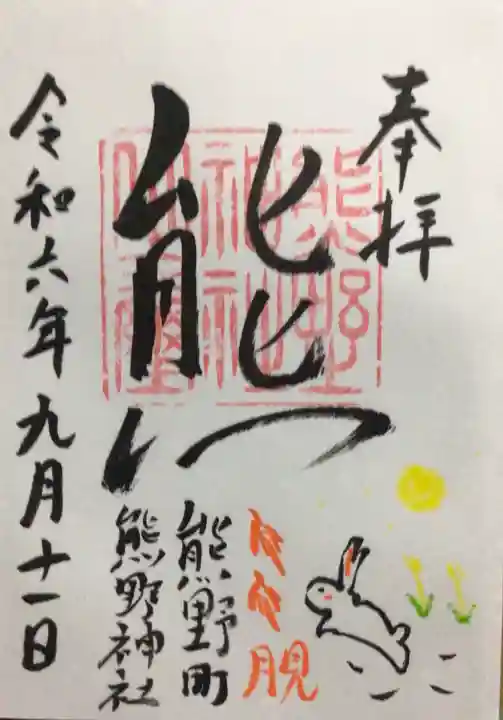 奉拝
熊野
神社
熊
月見
熊野町
熊野神社
令和六年九月十一日